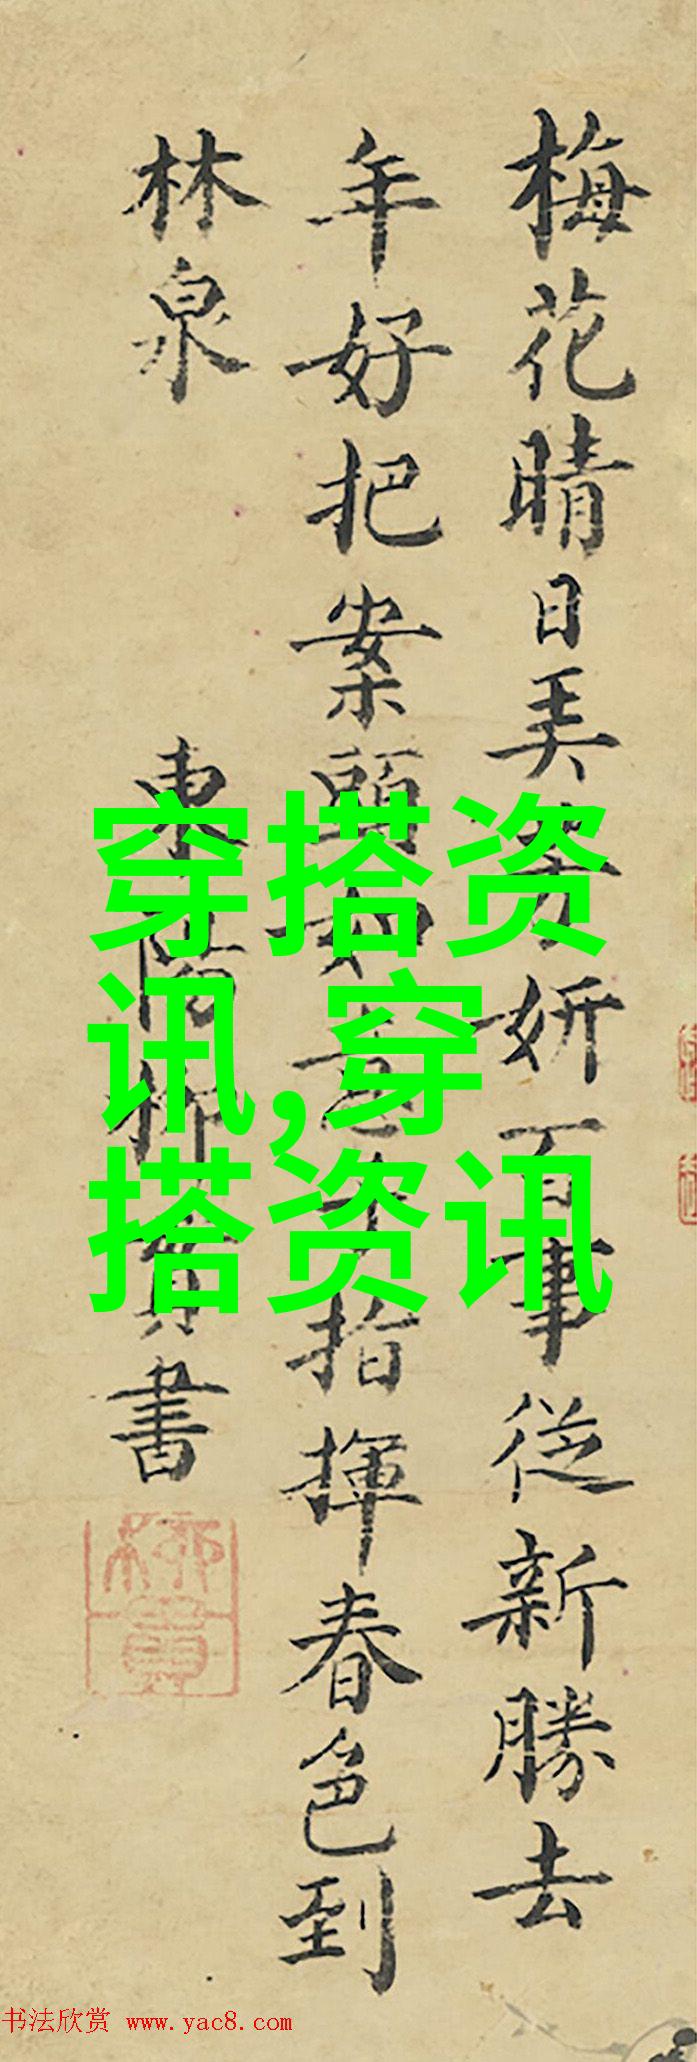 梅花晴日美妍百事從新勝去
年好把案頭如意指揮春色到
林泉
東陽柳貫書
柳貫
穿搭资
讯,穿
搭资讯
书法欣赏 www.yac8.com